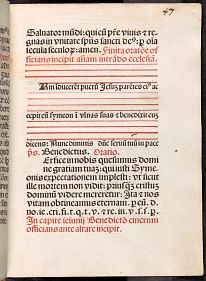 47
Saluator mūdi: qui cū p̄re viuis ⁊ re
gnas in vnitate sp̄us sancti de⁹: p oīa
secula seculoꝝ: amen. Finita oratōe of
ficians incipit aliam intrādo ecclesiā.
um īducerēt puerū Jesuz parētes ei⁹ ac
cepit eū symeon ī vlnas suas ⁊ benedixit euz
dicens: Nunc dimittis dn̄e seruū tuū in pace
p̄s. Benedictus. Oratio.
Erfice in nobis quesumus domi
ne gratiam tuaz: qui iusti Syme
onis expectationem implesti: vt sicut
ille mortem non vidit: priusq̄ꝫ cristuz
dominū videre mereretur: Ita ⁊ nos
vitam obtineamus eternam. p eū. d.
no. ie. cri. fi. t. q. t. v. ⁊ re. in. v. s. s. p.
In capite ieiunij Benedictō cinerum
officians ante altare incipit.